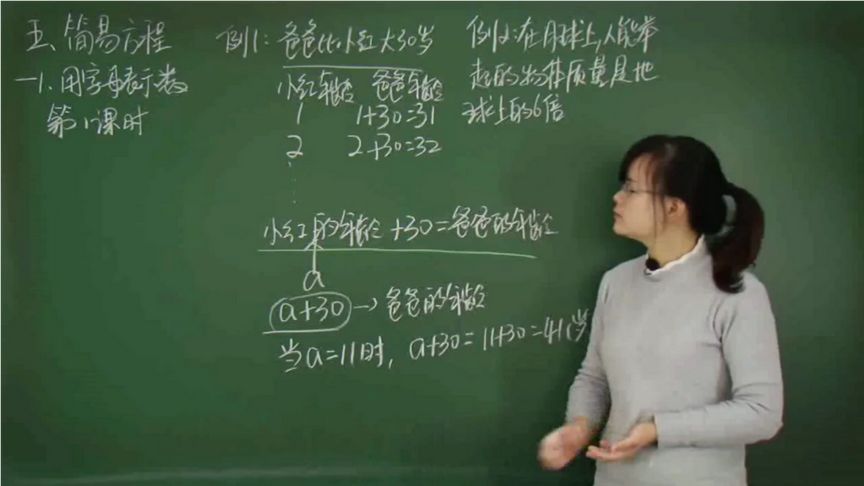 五、简易方程
一1.用字母表示数
第1课时
例1:爸爸比小红大30岁
小红年龄 爸爸年龄
1 1+30=31
2 2+30=32
小红的年龄+30=爸爸的年龄
a
a+30→爸爸的年龄
当a=11时,a+30=11+30=41(岁
例2:在月球上,人能举
起的物体质量是地
球上的6倍